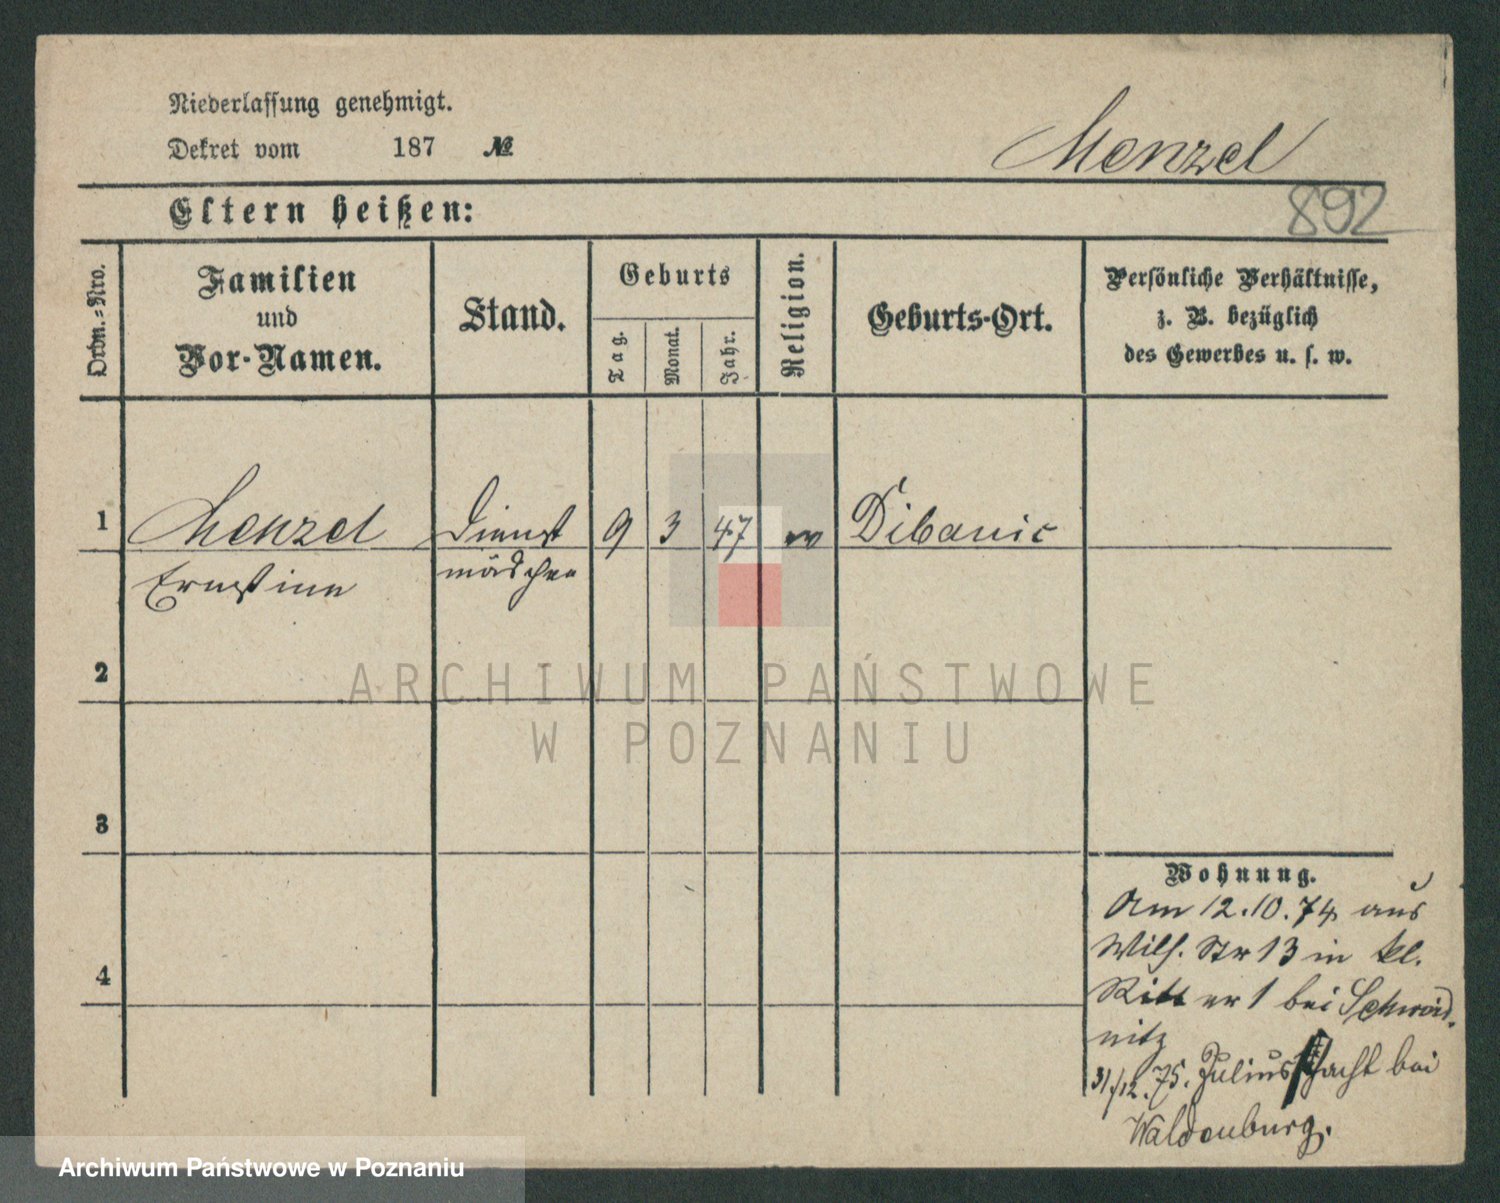 Niederlassung genehmigt.
Dekret vom 187 №
Menzel
Eltern heißen:
892
Ordn.=Nro.
Familien
und
Vor-Namen.
Stand.
Geburts
Tag.
Monat.
Jahr.
Religion.
Geburts-Ort.
Persönliche Verhältnisse,
z. B. bezüglich
des Gewerbes u. s. w.
1 Menzel Dienst 9 3 47 ev Dibanic
Ernstine mädchen
2
3
4
Wohnung.
Am 12.10.74 aus
Wilh. Str 13 in kl.
Ritter 1 bei Schweid-
nitz
31/12.75. Juliusschacht bei
Waldenburg.
ARCHIWUM PAŃSTWOWE
W POZNANIU
Archiwum Państwowe w Poznaniu